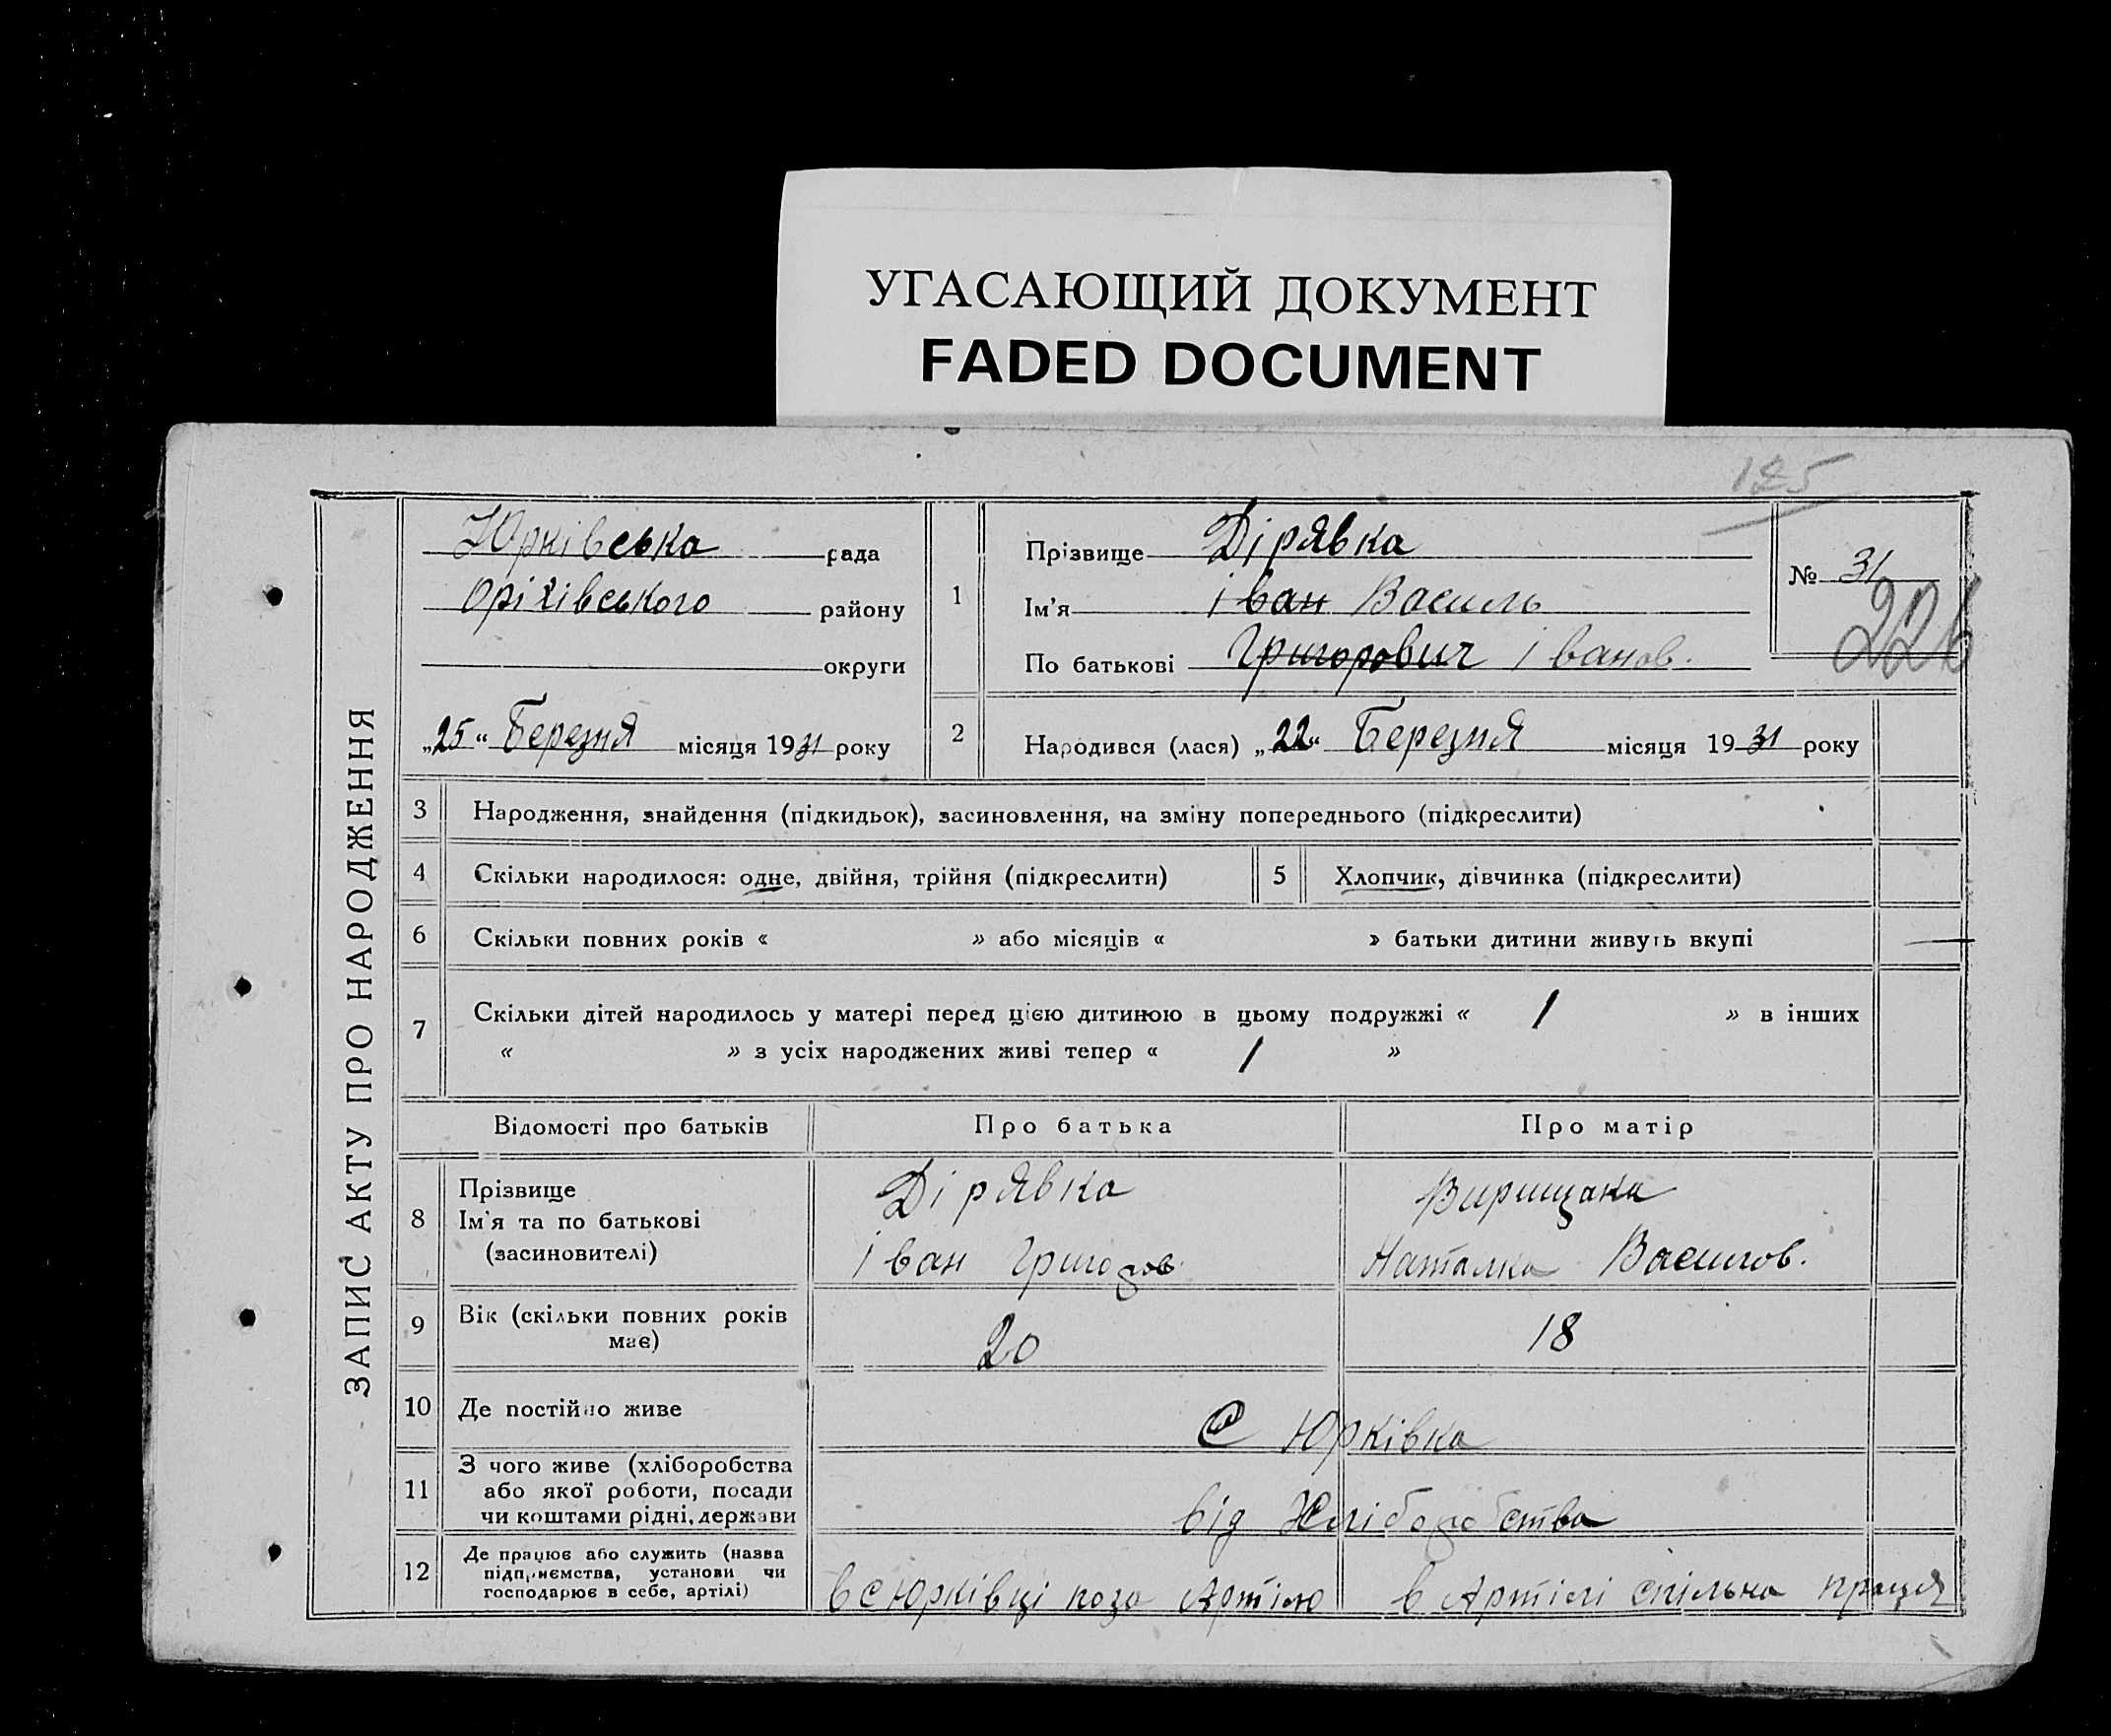 УГАСАЮЩИЙ ДОКУМЕНТ
FADED DOCUMENT
125
ЗАПИС АКТУ ПРО НАРОДЖЕННЯ
Юрківська рада
Оріхівського району
округи
„25“ Березня місяця 1931 року
1
Прізвище Дірявка
Ім'я іван Василь
По батькові Григорович іванов.
№ 31
226
2 Народився (лася) „22“ Березня місяця 1931 року
3 Народження, знайдення (підкидьок), засиновлення, на зміну попереднього (підкреслити)
4 Скільки народилося: одне, двійня, трійня (підкреслити) 5 Хлопчик, дівчинка (підкреслити)
6 Скільки повних років « » або місяців « » батьки дитини живуть вкупі
7 Скільки дітей народилось у матері перед цією дитиною в цьому подружжі « 1 » в інших
« » з усіх народжених живі тепер « 1 »
Відомості про батьків Про батька Про матір
8 Прізвище
Ім'я та по батькові
(засиновителі)
Дірявка
іван Григоров.
Вирищака
Наталка Василов.
9 Вік (скільки повних років
має)
20 18
10 Де постійно живе
с Юрківка
11 З чого живе (хліборобства
або якої роботи, посади
чи коштами рідні, держави
від Хліборобства
12 Де працює або служить (назва
підприємства, установи чи
господарює в себе, артілі)
в с Юрківці поза Артілю в Артілі спільна праця